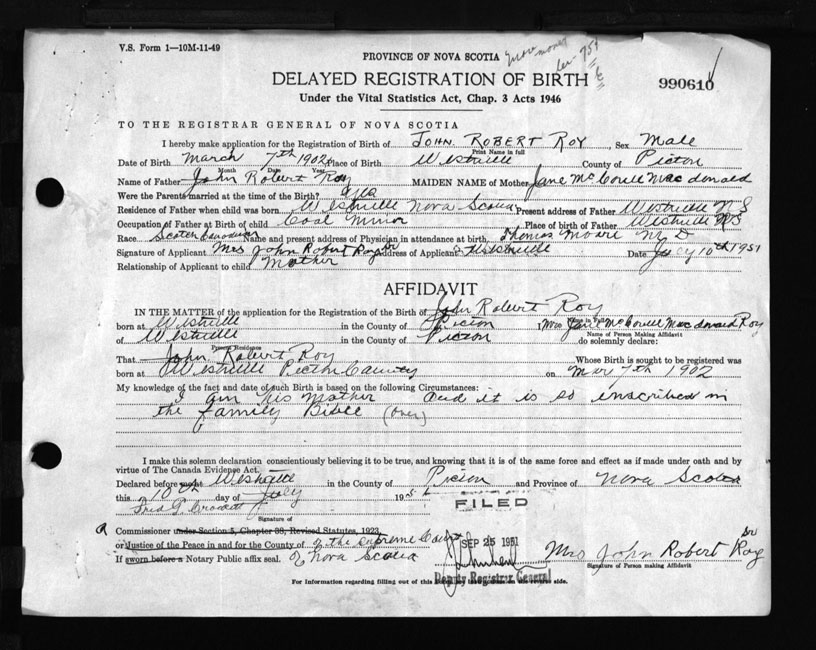 V.S. Form 1—10M-11-49
PROVINCE OF NOVA SCOTIA
DELAYED REGISTRATION OF BIRTH
990610
Under the Vital Statistics Act, Chap. 3 Acts 1946
TO THE REGISTRAR GENERAL OF NOVA SCOTIA
I hereby make application for the Registration of Birth of JOHN ROBERT ROY, Sex Male
Print Name in full
Date of Birth March 7th 1902 Place of Birth Westville County of Picton
Month Date Year
Name of Father John Robert Roy MAIDEN NAME of Mother Jane McCoull Macdonald
Were the Parents married at the time of the Birth? Yes
Residence of Father when child was born Westville Nova Scotia Present address of Father Westville N S
Occupation of Father at Birth of child Coal Minor Place of birth of Father Westville NS
Race Scotch Canadian Name and present address of Physician in attendance at birth, Thomas Moore M. D
Signature of Applicant Mrs John Robert Roy Sr Address of Applicant Westville Date July 10th 1951
Relationship of Applicant to child Mother
AFFIDAVIT
IN THE MATTER of the application for the Registration of the Birth of John Robert Roy
Name in Full
born at Westville in the County of Picton, I, Mrs Jane McCoull Macdonald Roy
Name of Person Making Affidavit
of Westville in the County of Picton do solemnly declare:
Present Residence
That John Robert Roy Whose Birth is sought to be registered was
born at Westville Picton County on Mar 7th 1902
My knowledge of the fact and date of such Birth is based on the following Circumstances:
I am his Mother and it is so inscribed in
the family Bible (over)
I make this solemn declaration conscientiously believing it to be true, and knowing that it is of the same force and effect as if made under oath and by
virtue of The Canada Evidence Act.
Declared before me at Westville in the County of Picton and Province of Nova Scotia
this 10th day of July 195
FILED
Signature of
SEP 25 1951
A Commissioner under Section 5, Chapter 38, Revised Statutes, 1923,
or Justice of the Peace in and for the County of of the Supreme Court
If sworn before a Notary Public affix seal. of Nova Scotia
Mrs John Robert Roy Sr
Signature of Person making Affidavit
Deputy Registrar General
For Information regarding filling out of this reverse side.